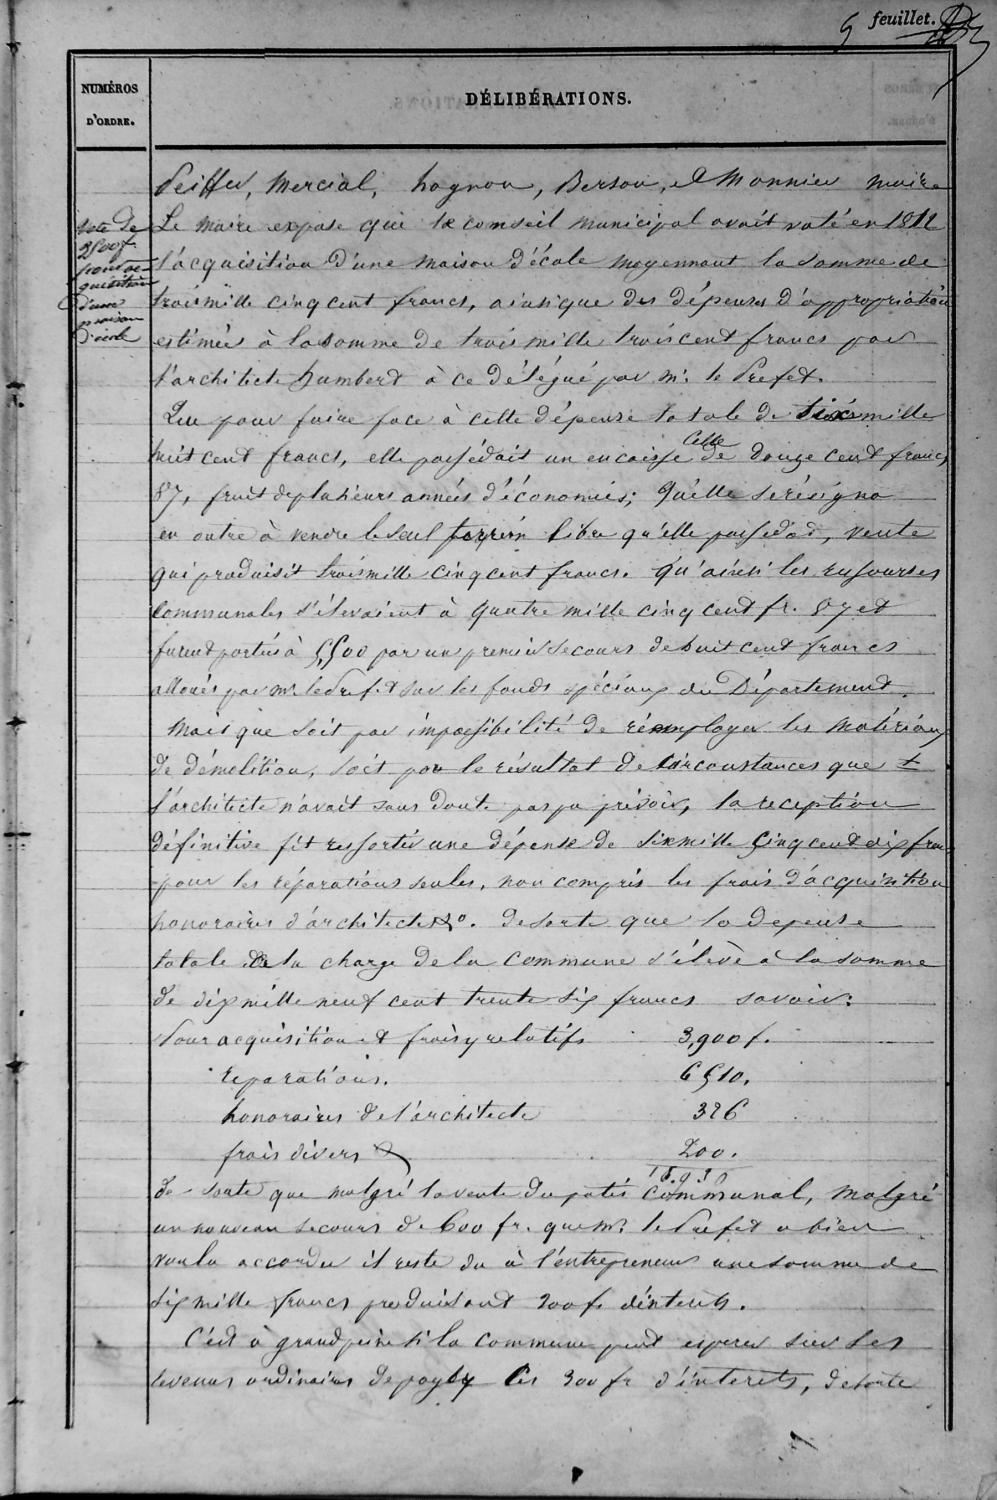 5 feuillet.
NUMÉROS
D'ORDRE.
DÉLIBÉRATIONS.
Peiffer, Mercial, hognon, Berson, et Monnier maire
Le maire expose que le conseil municipal avait voté en 1842
l'acquisition d'une maison d'école moyennant la somme de
trois mille cinq cent francs, ainsi que des dépenses d'appropriation
estimées à la somme de trois mille trois cent francs par
l'architecte humbert à ce délégué par mr. le Prefet.
vote de
2500f.
pour ac-
quisition
d'une
maison
d'école
Que pour faire face à cette dépense totale de six mille
huit cent francs, elle possédait un encaisse de douze cent francs
87, fruit de plusieurs années d'économies; Qu'elle se résigna
en outre à vendre le seul terrein libre qu'elle possédât, vente
qui produisit trois mille cinq cent francs. qu'ainsi les ressources
communales s'élevaient à quatre mille cinq cent fr. 87 et
furent portées à 5,500 par un premier secours de huit cent francs
alloués par mr. le Prefet sur les fonds spéciaux du Département.
Mais que soit par impossibilité de réemployer les matériaux
de démolition, soit par le résultat de circonstances que
l'architecte n'avait sans doute pas pu prévoir, la reception
définitive fit ressortir une dépense de six mille cinq cent dix fran
pour les réparations seules, non compris les frais d'acquisition
honoraires d'architecte &o. de sorte que la depense
totale à la charge de la commune s'élève à la somme
de dix mille neuf cent trente six francs savoir:
Pour acquisition et frais y relatifs 3,900 f.
reparations. 6510.
honoraires de l'architecte 326
frais divers 200.
10.936
de sorte que malgré la vente du patis communal, malgré
un nouveau secours de 600 fr. que mr. le Prefet a bien
voulu accorder il reste du à l'entrepreneur une somme de
six mille francs produisant 300 f. d'interets.
C'est à grand peine si la commune peut esperer sur ses
revenus ordinaires de payer les 300 fr d'interets, de sorte